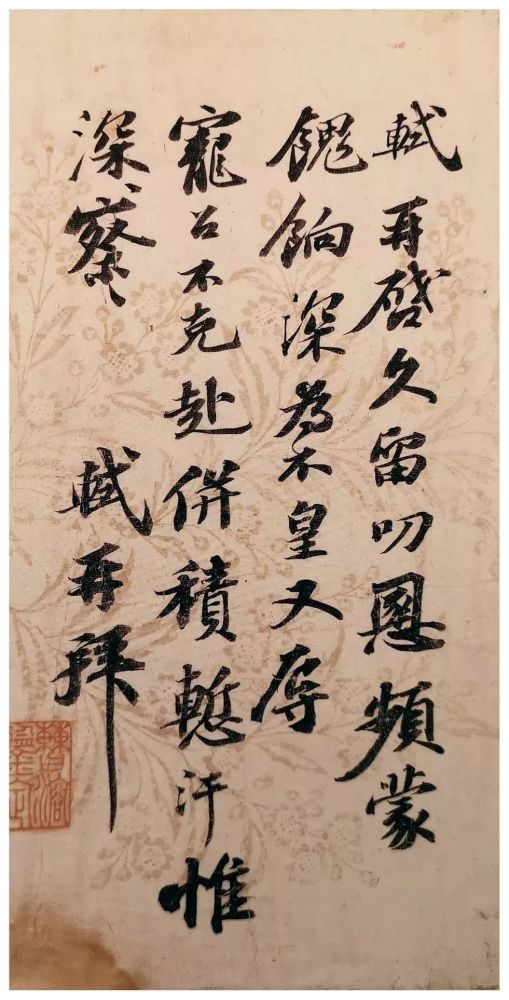 軾再啓久留叨恩頻蒙
餽餉深為不皇又辱
寵召不克赴併積慙汗惟
深察 軾再拜